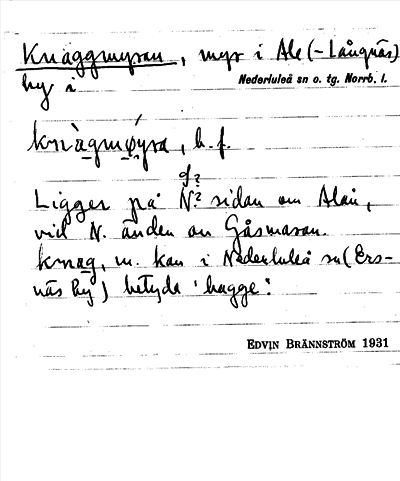 Knäggmyran, myr i Ale (-Långnäs)
by i Nederluleå sn o. tg. Norrb. l.
knàgmýra, b. f.
Ö?
Ligger på N? sidan om Alån,
vid N. änden av Gåsmaran.
knag, m. kan i Nederluleå sn (Ers-
näs by) betyda 'bagge'.
EDVIN BRÄNNSTRÖM 1931